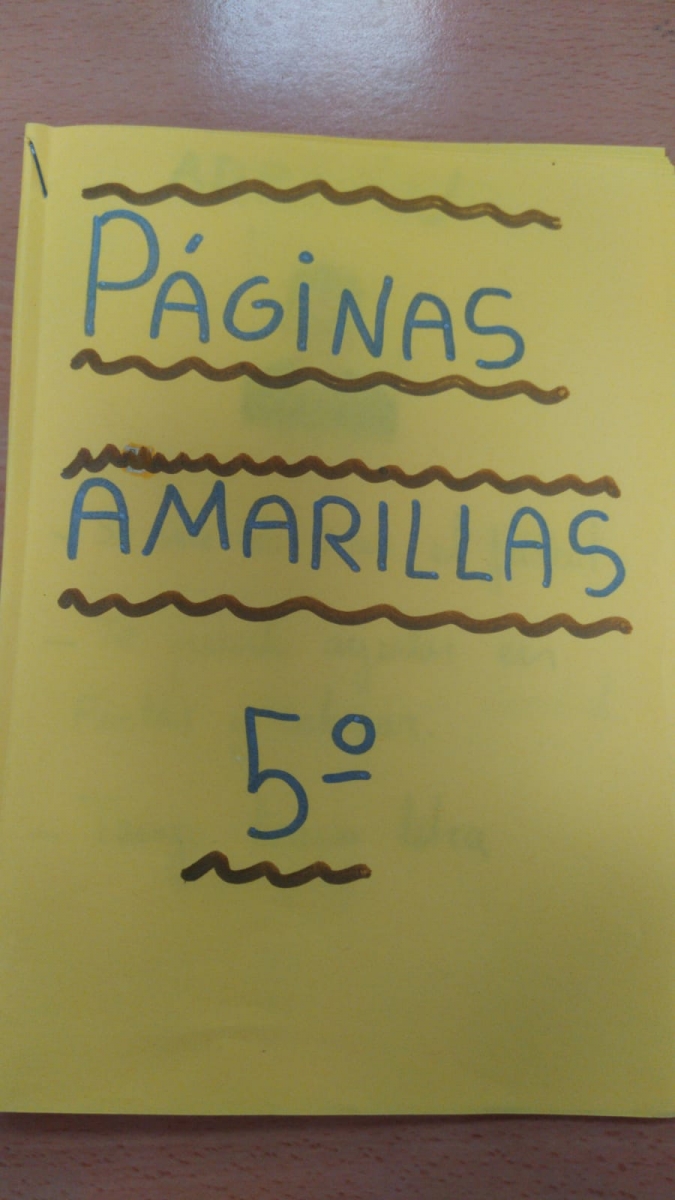 PÁGINAS
AMARILLAS
5º